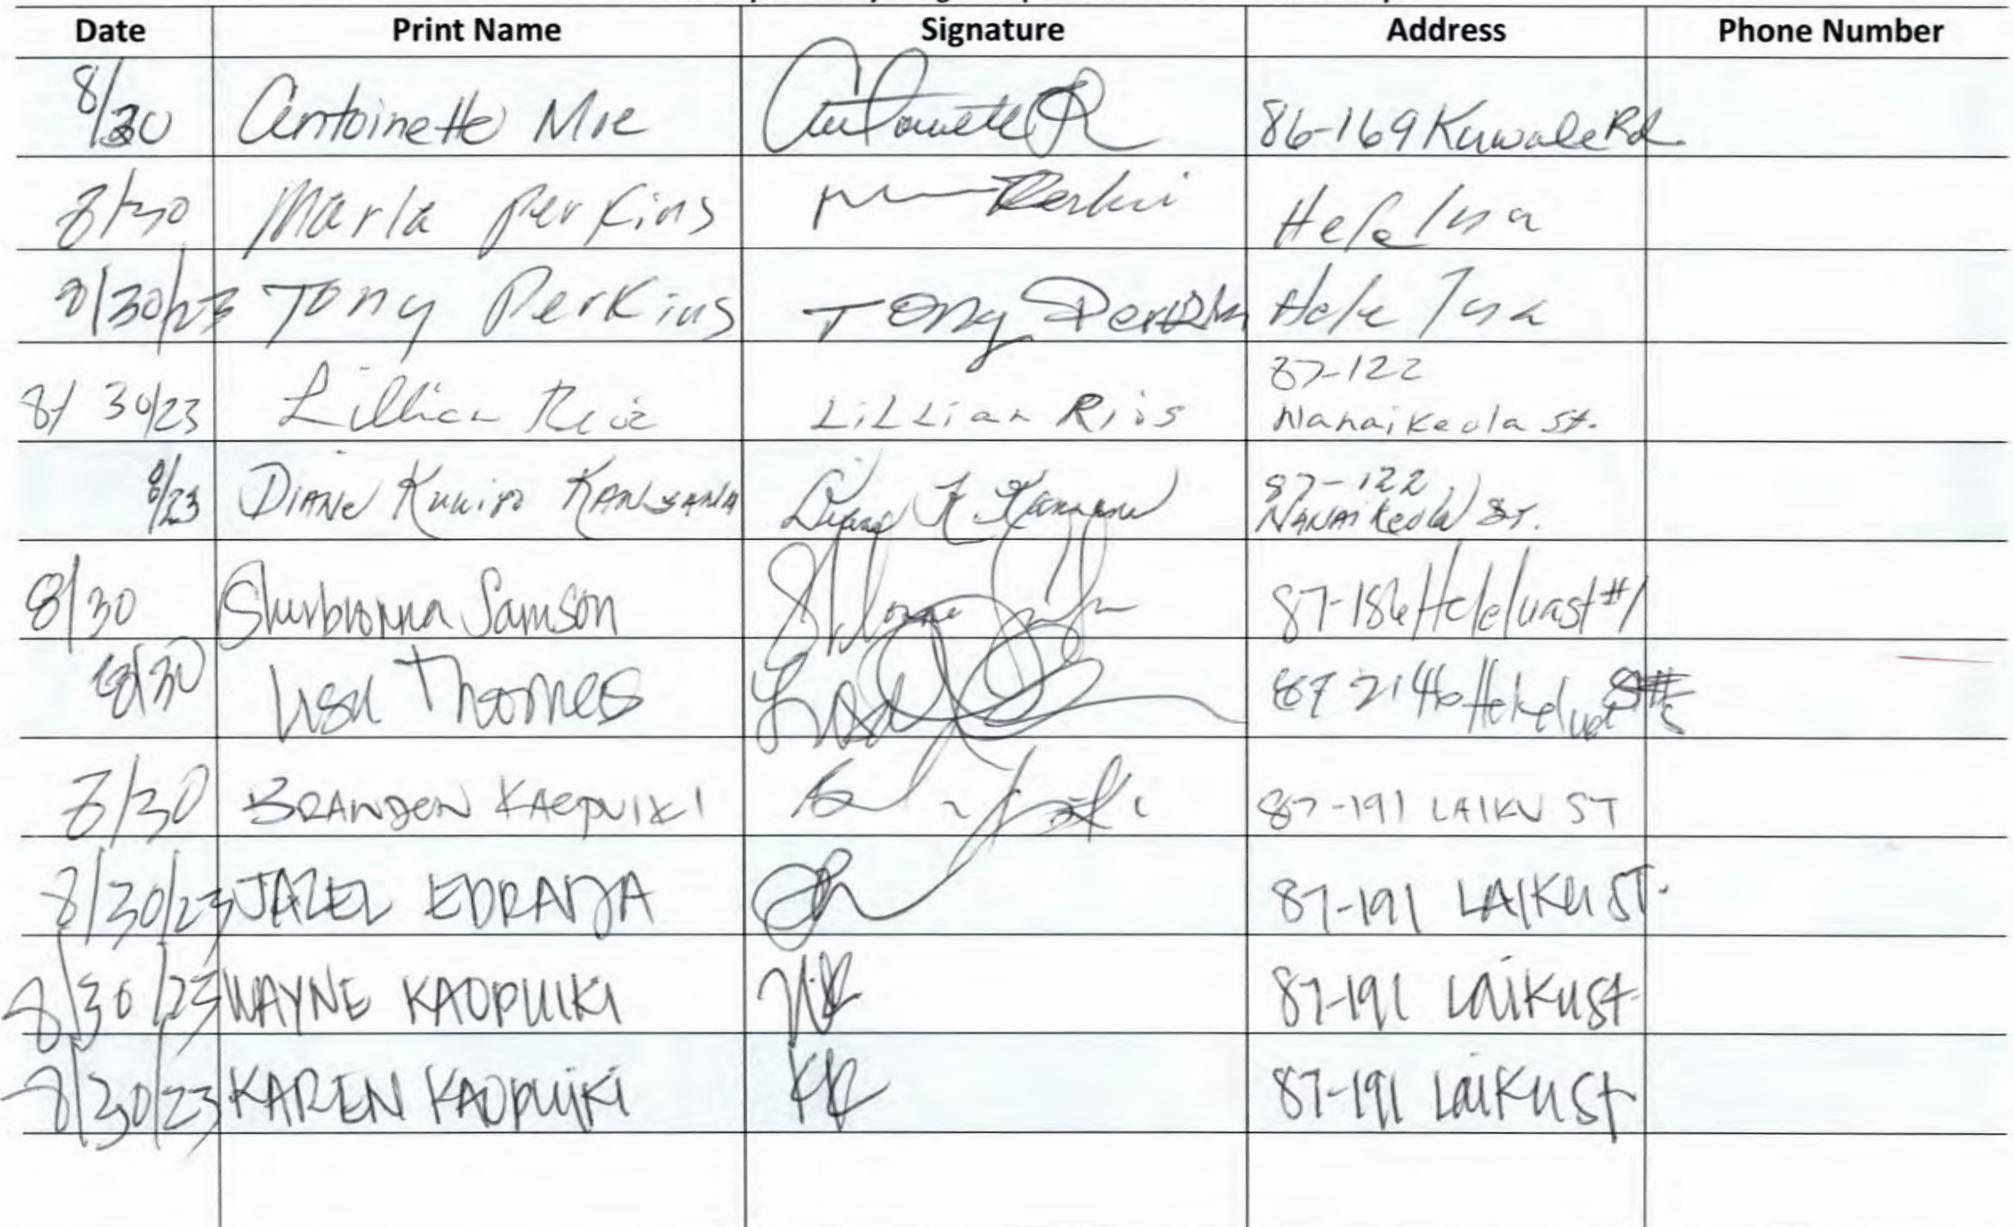 Date Print Name Signature Address Phone Number
8/30 Antoinette Moe 86-169 Kuwale Rd
8/30 Marla Perkins Perkins Helelua
8/30/23 Tony Perkins Tony Hele lua
8/30/23 Lillian Rios LiLLian Rios 87-122
Nanaikeola St.
8/23 DIANE 87-122
NANAikeola ST.
8/30 Samson 87-186 Helelua st #1
8/30 Lisa Thomas Lisa
8/30 BRANDON KAOPUIKI 87-191 LAIKU ST
8/30/23 JAZEL EDRADA 87-191 LAIKU ST.
8/30/23 WAYNE KAOPUIKI WK 87-191 LAIKU St
8/30/23 KAREN KAOPUIKI KK 87-191 LAIKU St